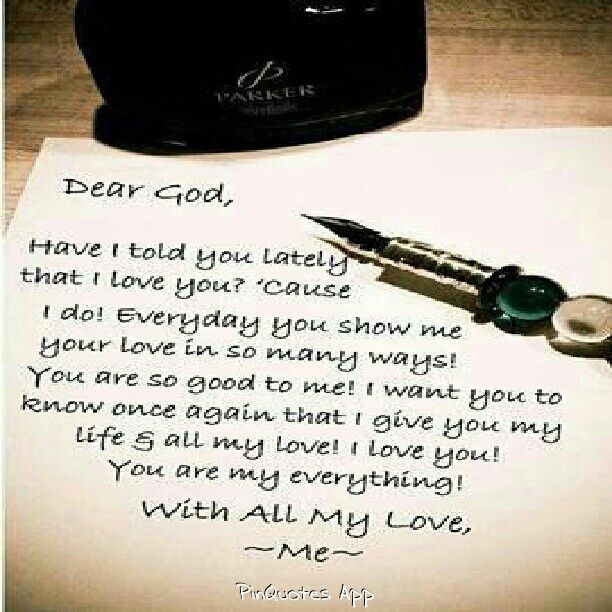 PARKER
Dear God,
Have I told you lately
that I love you? 'Cause
I do! Everyday you show me
your love in so many ways!
You are so good to me! I want you to
know once again that I give you my
life & all my love! I love you!
You are my everything!
With All My Love,
~Me~
PinQuotes App